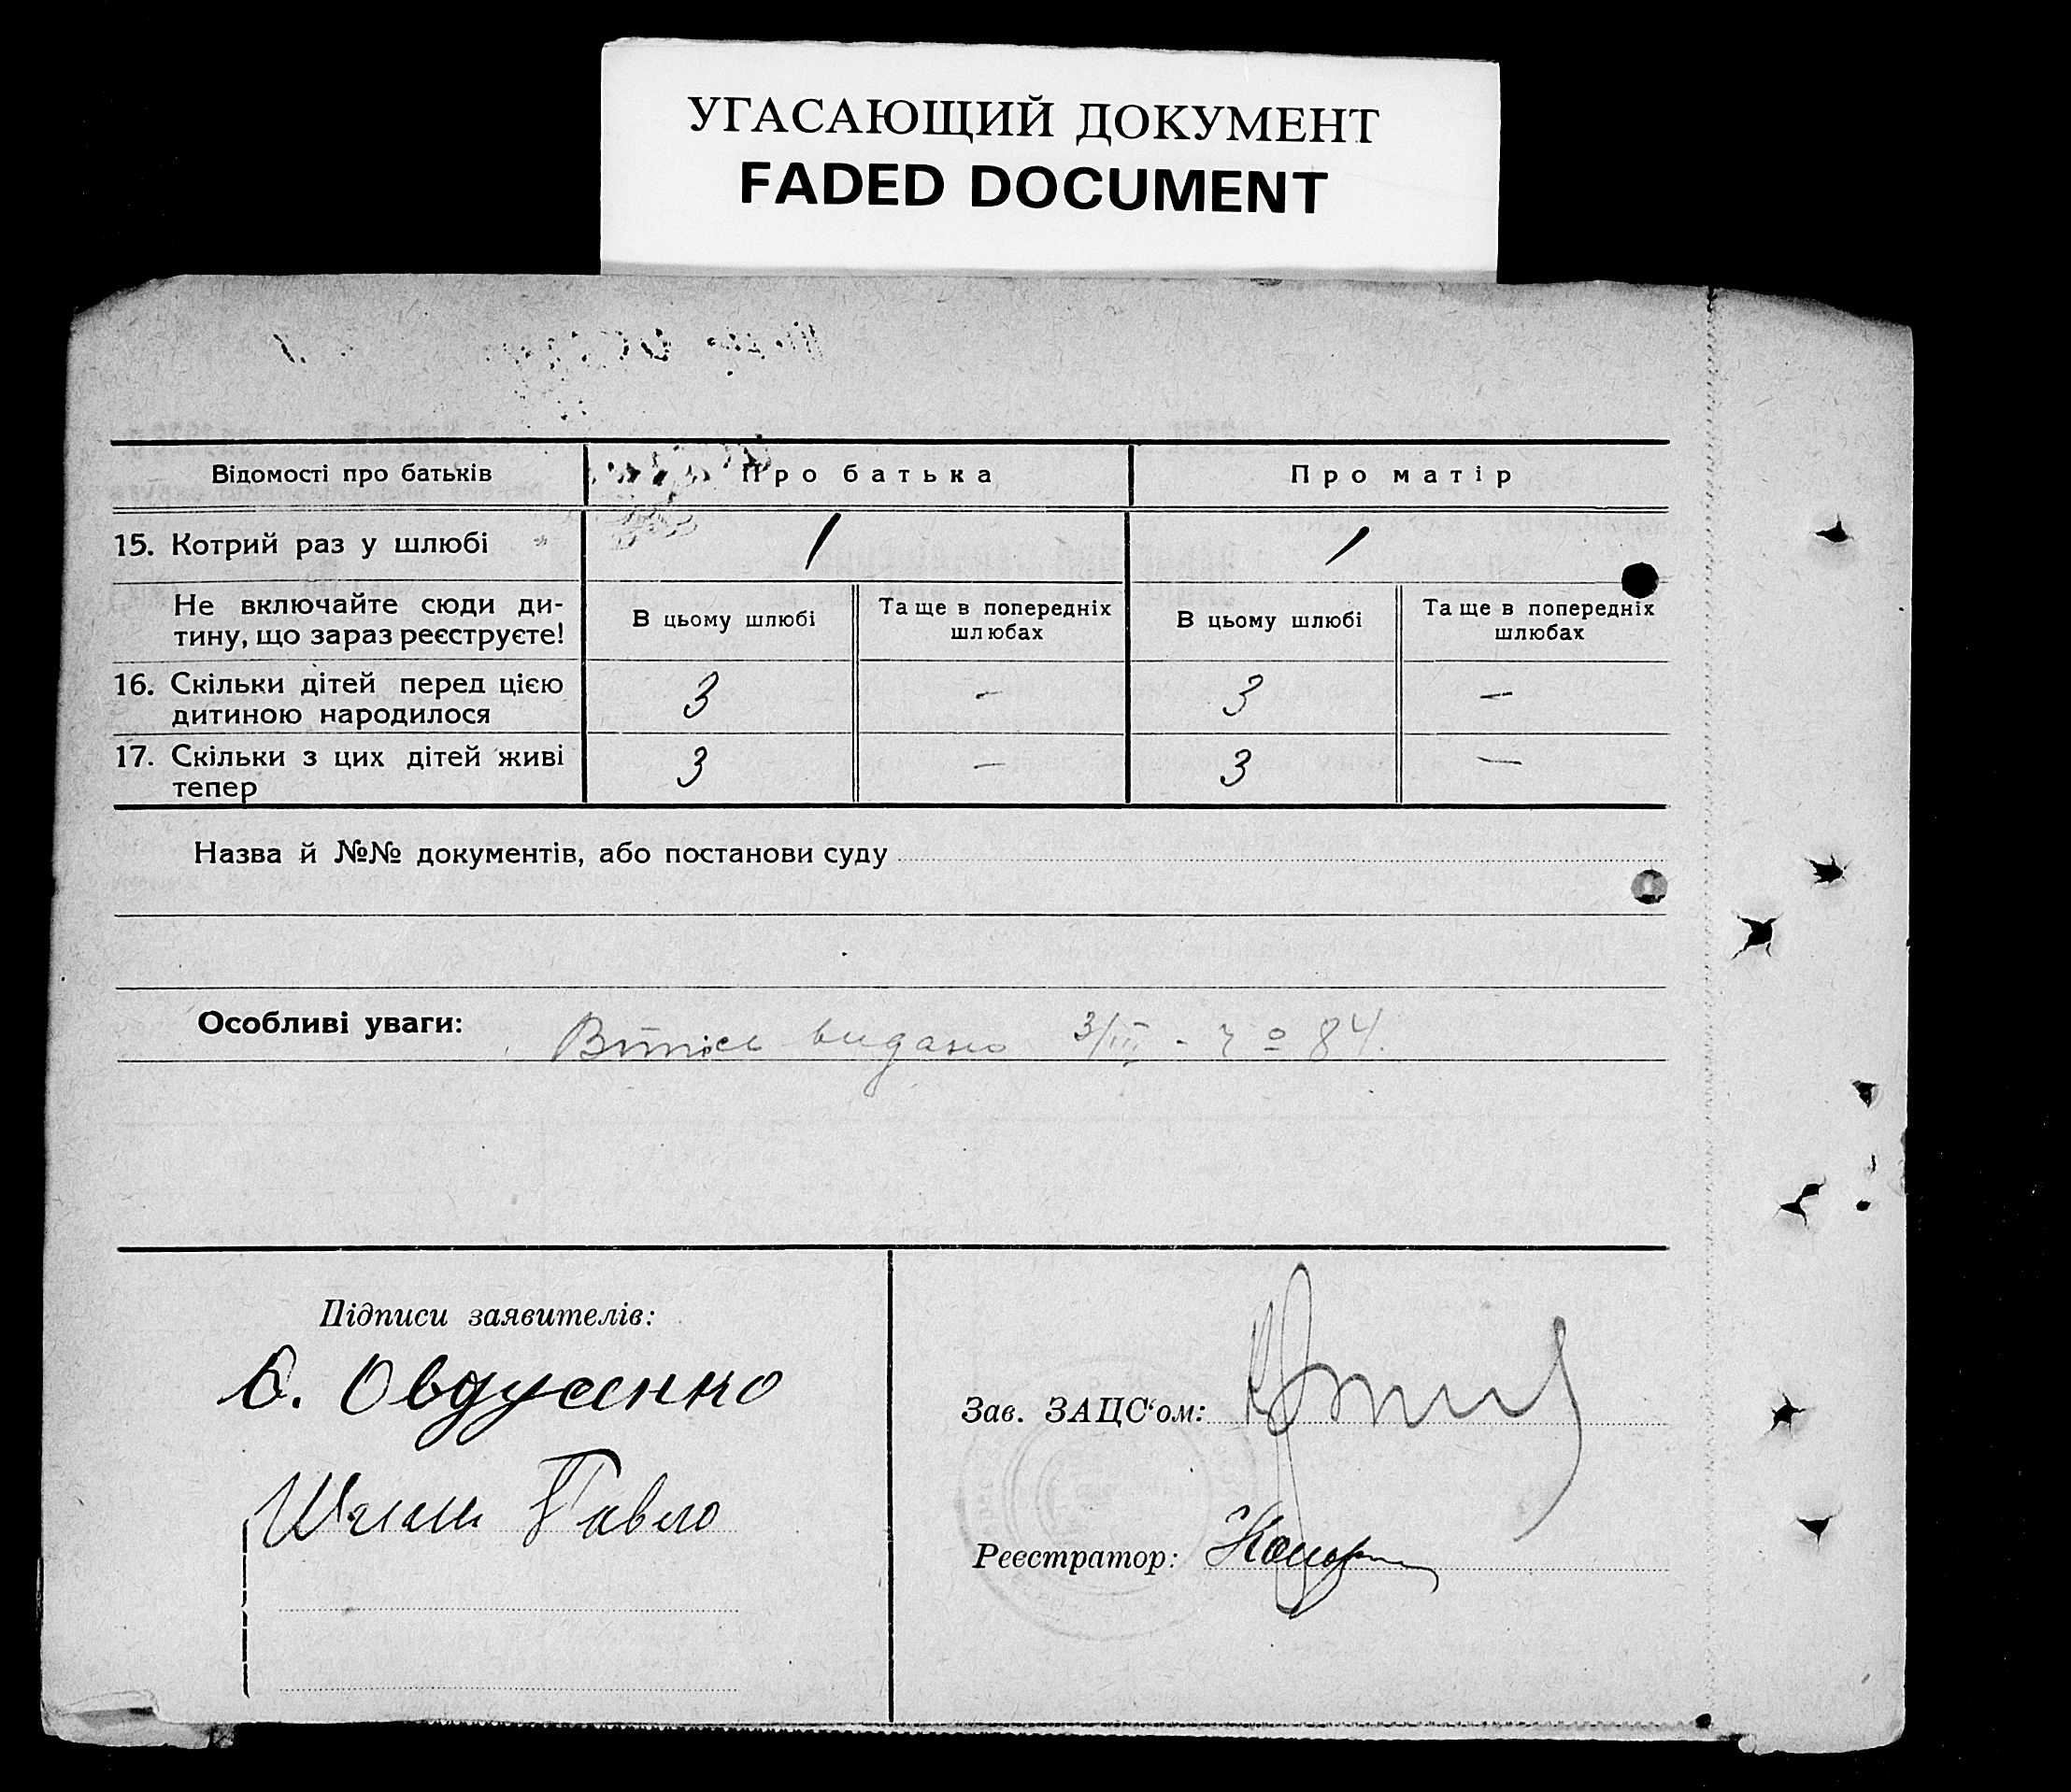 УГАСАЮЩИЙ ДОКУМЕНТ
FADED DOCUMENT
Відомості про батьків Про батька Про матір
15. Котрий раз у шлюбі 1 1
Не включайте сюди ди-
тину, що зараз реєструєте!
В цьому шлюбі
Та ще в попередніх
шлюбах
В цьому шлюбі
Та ще в попередніх
шлюбах
16. Скільки дітей перед цією
дитиною народилося
3 — 3 —
17. Скільки з цих дітей живі
тепер
3 — 3 —
Назва й №№ документів, або постанови суду
Особливі уваги: видано 3/III - 84.
Підписи заявителів:
Павло
Зав. ЗАЦС‘ом:
Реєстратор: